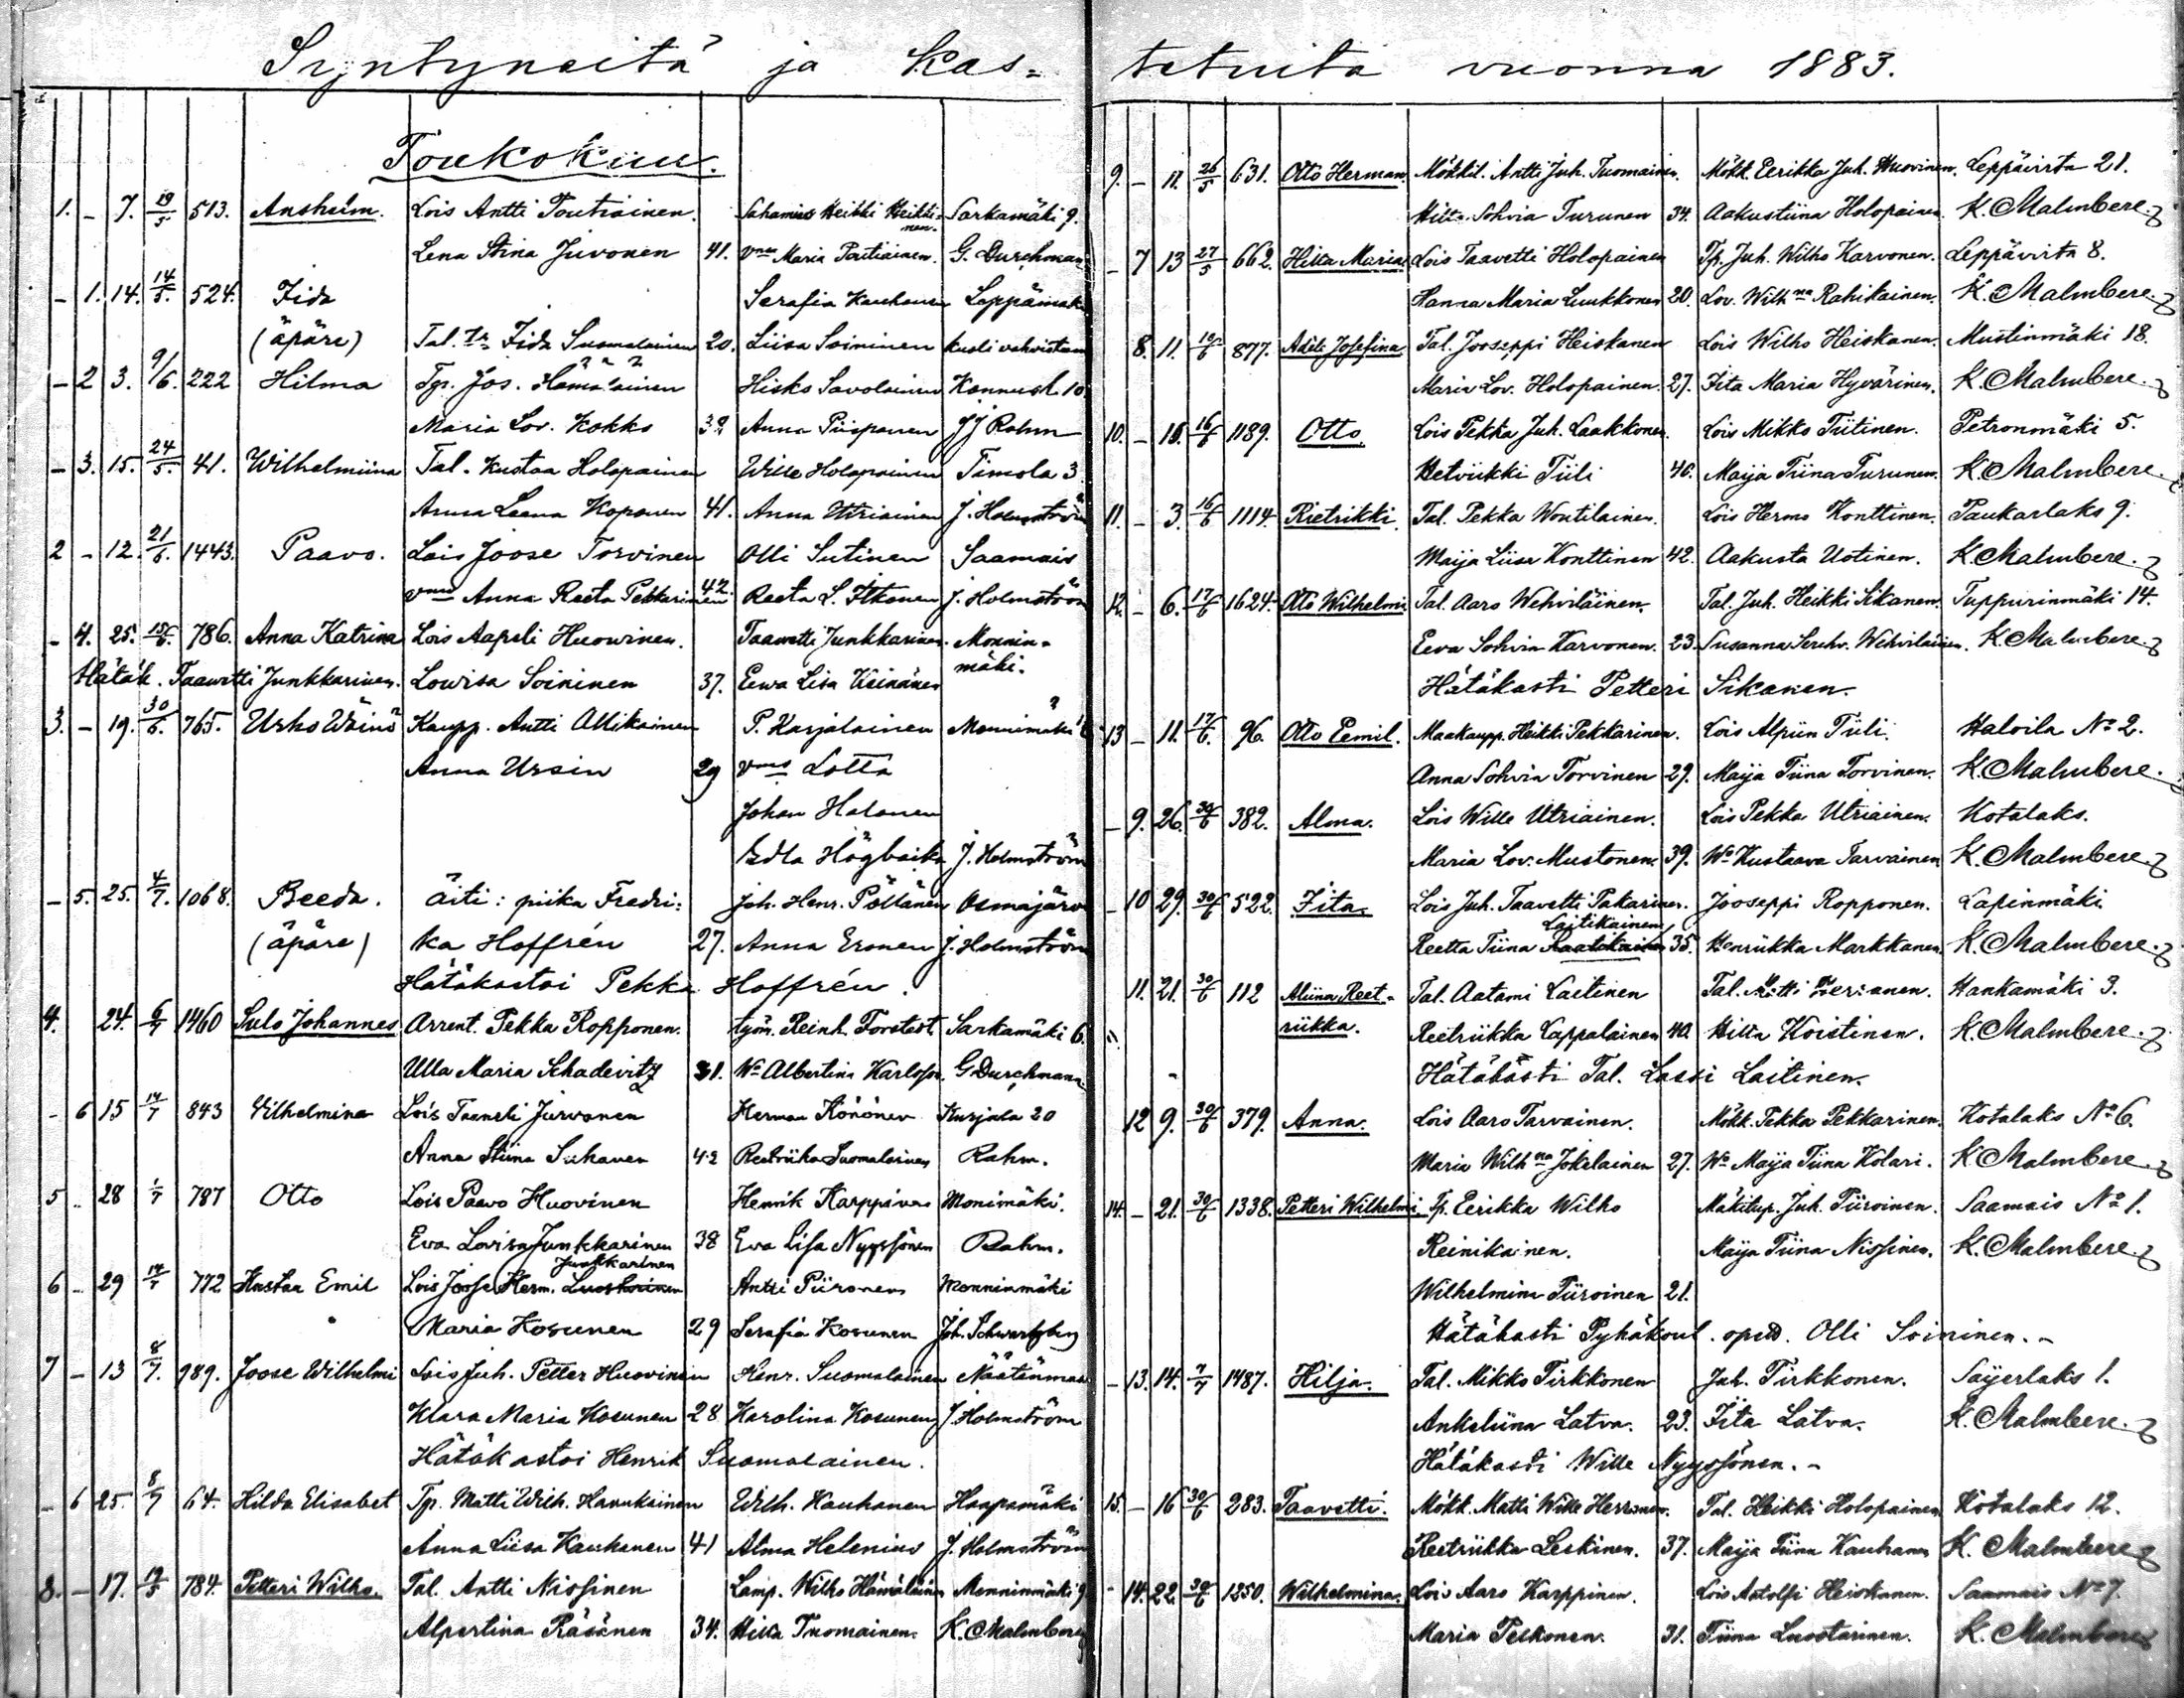 Syntyneitä ja Kas=
Toukokuu.
1. - 7. 19/5 513. Ansheim. Lois Antti Toutiainen. Heikki Heikki- Sarkamäki 9.
nen.
Lena Stina Juvonen 41. vmo Maria Poutiainen. G. Durchman
- 1. 14. 14/5. 524. Iida Serafia Kauhanen Leppämäki
(äpäre) Tal. Tr Iida Suomalainen 20. Liisa Soininen kuoli vahvistam
- 2 3. 9/6. 222 Hilma Tp. Jos. Hämäläinen Hisko Savolainen Konnusl. 10
Maria Lov. Kokko 39 Anna Piispanen JJ Rahm
- 3. 15. 24/5. 41. Wilhelmiina Tal. Kustaa Holopainen Wille Holopainen Timola 3
Anna Leena Koponen 41. Anna Utriainen J. Holmström
2 - 12. 21/6. 1443. Paavo. Lois Joose Torvinen Olli Sutinen Saamais
vmo Anna Reeta Pekkarinen 42. Reeta L. Itkonen J. Holmström
- 4. 25. 15/6. 786. Anna Katrina Lois Aapeli Huowinen. Taavetti Junkkarinen. Monnin=
mäki.
Hätäk. Taawetti Junkkarinen. Lowisa Soininen 37. Eewa Lisa Keinänen
3. - 19. 30/6. 765. Urho Wäinö Kaupp. Antti Allikainen P. Karjalainen Monnimäki
Anna Ursin 29 vmo Lotta
Johan Halonen
Edla J. Holmström
- 5. 25. 4/7. 1068. Beeda. äiti: piika Fredri: Joh. Henr. Pöllänen Osmajärvi
(äpäre) ka Hoffrén 27. Anna Eronen J. Holmström
Hätäkastoi Pekka Hoffrén.
4. 24. 6/7 1460 Sulo Johannes Arrent. Pekka Ropponen. työm. Reinh. Forstedt Sarkamäki 6.
Ulla Maria Schadevitz 31. Wo Albertina Karlsson. G Durchman.
- 6 15 14/7 843 Vilhelmina Lois Taaveli Jurvanen Herman Könönen Kurjala 20
Anna Stiina Siikanen 42 Reetriika Suomalainen Rahm.
5 - 28 1/7 787 Otto Lois Paavo Huovinen Henrik Karppinen Monimäki.
Eva Lovisa Junkkarinen 38 Eva Lisa Nyyssönen Rahm.
Junkkarinen
6 - 29 14/7 772 Kustaa Emil Lois Joose Herm. Luostarinen Antti Piironen Monninmäki
Maria Kosunen 29 Serafia Kosunen Joh. Schwartzberg
7 - 13 8/7. 989. Joose Wilhelmi Lois Juh. Petter Huovinen Henr. Suomalainen Näätänmaa
Klara Maria Kosunen 28 Karolina Kosunen J. Holmström
Hätäkastoi Henrik Suomalainen.
- 6 25. 8/7 64. Hilda Elisabet Tp. Matti Wilh. Hanukainen Wilh. Kauhanen Haapamäki
Anna Liisa Kauhanen 41 Alma Helenius J. Holmström
8. - 17. 19/5 784. Petteri Wilho. Tal. Antti Nissinen Lamp. Wilho Hämäläinen Monninmäki 9
Alpertina Räsänen 34. Hilta Tuomainen. K. Malmberg
tetuita vuonna 1883.
9. - 11. 26/5 631. Otto Herman. Mökkil. Antti Juh. Tuomainen. Mökk. Eerikka Juh. Huovinen. Leppävirta 21.
Hilta Sohvia Turunen 34. Aakustiina Holopainen. K. Malmberg.
- 7 13 27/5 662. Hilta Maria. Lois Taavetti Holopainen Tp. Juh. Wilho Karvonen. Leppävirta 8.
Hanna Maria Luukkonen 20. Lov. Wilhna Rahikainen. K. Malmberg.
8. 11. 10/6 877. Adele Josefina Tal. Jooseppi Heiskanen Lois Wilho Heiskanen. Mustinmäki 18.
Maria Lov. Holopainen. 27. Iita Maria Hyvärinen. K. Malmberg.
10. - 10. 16/6 1189. Otto. Lois Pekka Juh. Laakkonen. Lois Mikko Tiitinen. Petronmäki 5.
Hetviikki Tiili 40. Maija Tiina Turunen. K. Malmberg.
11. - 3. 16/6 1114. Rietrikki. Tal. Pekka Woutilainen. Lois Hermo Konttinen. Paukarlaks 9.
Maija Liisa Konttinen 42. Aakusta Uotinen. K. Malmberg.
12. - 6. 17/6 1624. Otto Wilhelmi Tal. Aaro Wehviläinen. Tal. Juh. Heikki Sikanen. Tuppurinmäki 14.
Eeva Sohvia Karvonen. 23. Susanna Wehviläinen. K. Malmberg.
Hätäkasti Petteri Sikanen.
13 - 11. 17/6. 96. Otto Eemil. Maakaupp. Heikki Pekkarinen. Lois Alpiin Tiili. Halvila No 2.
Anna Sohvia Torvinen 29. Maija Tiina Torvinen. K. Malmberg.
- 9. 26. 30/6 382. Alma. Lois Wille Utriainen. Lois Pekka Utriainen. Kotalaks.
Maria Lov. Mustonen. 39. Wo Kustaava Tarvainen K. Malmberg.
- 10 29. 30/6 522. Iita. Lois Juh. Taavetti Pakarinen. Jooseppi Ropponen. Lapinmäki
Laitikainen
Reetta Tiina 35. Henriikka Markkanen. K. Malmberg.
11. 21. 30/6 112 Aliina Reet- Tal. Aatami Laitinen Tal. Hankamäki 3.
riikka. Reetriikka Lappalainen 40. Hilta Koistinen. K. Malmberg.
Hätäkasti Tal. Lassi Laitinen.
12 9. 30/6 379. Anna. Lois Aaro Tarvainen. Mökk. Pekka Pekkarinen. Kotalaks No 6.
Maria Wilhna Jokelainen 27. Wo Maija Tiina Kolari. K. Malmberg.
14. - 21. 30/6 1338. Petteri Wilhelmi. Tp. Eerikka Wilho Mäkitup. Juh. Piiroinen. Saamais No 1.
Reinikainen. Maija Tiina Nissinen. K. Malmberg.
Wilhelmina Piiroinen 21.
Hätäkasti Pyhäkoul. opett. Olli Soininen. -
- 13. 14. 7/7 1487. Hilja. Tal. Mikko Pirkkonen Juh. Pirkkonen. Saijerlaks 1.
Ankeliina Latva. 23. Iita Latva. K. Malmberg.
Hätäkasti Wille Nyyssönen. -
15. - 16 30/6 283. Taavetti. Mökk. Matti Wille Herranen. Tal. Heikki Holopainen Kotalaks 12.
Reetriikka Leskinen. 37. Maija Tiina Kauhanen K. Malmberg
14. 22. 30/6 1350. Wilhelmina. Lois Aaro Karppinen. Lois Aatolfi Heiskanen. Saamais No 7.
Maria Pelkonen. 31. Tiina Luostarinen. K. Malmberg